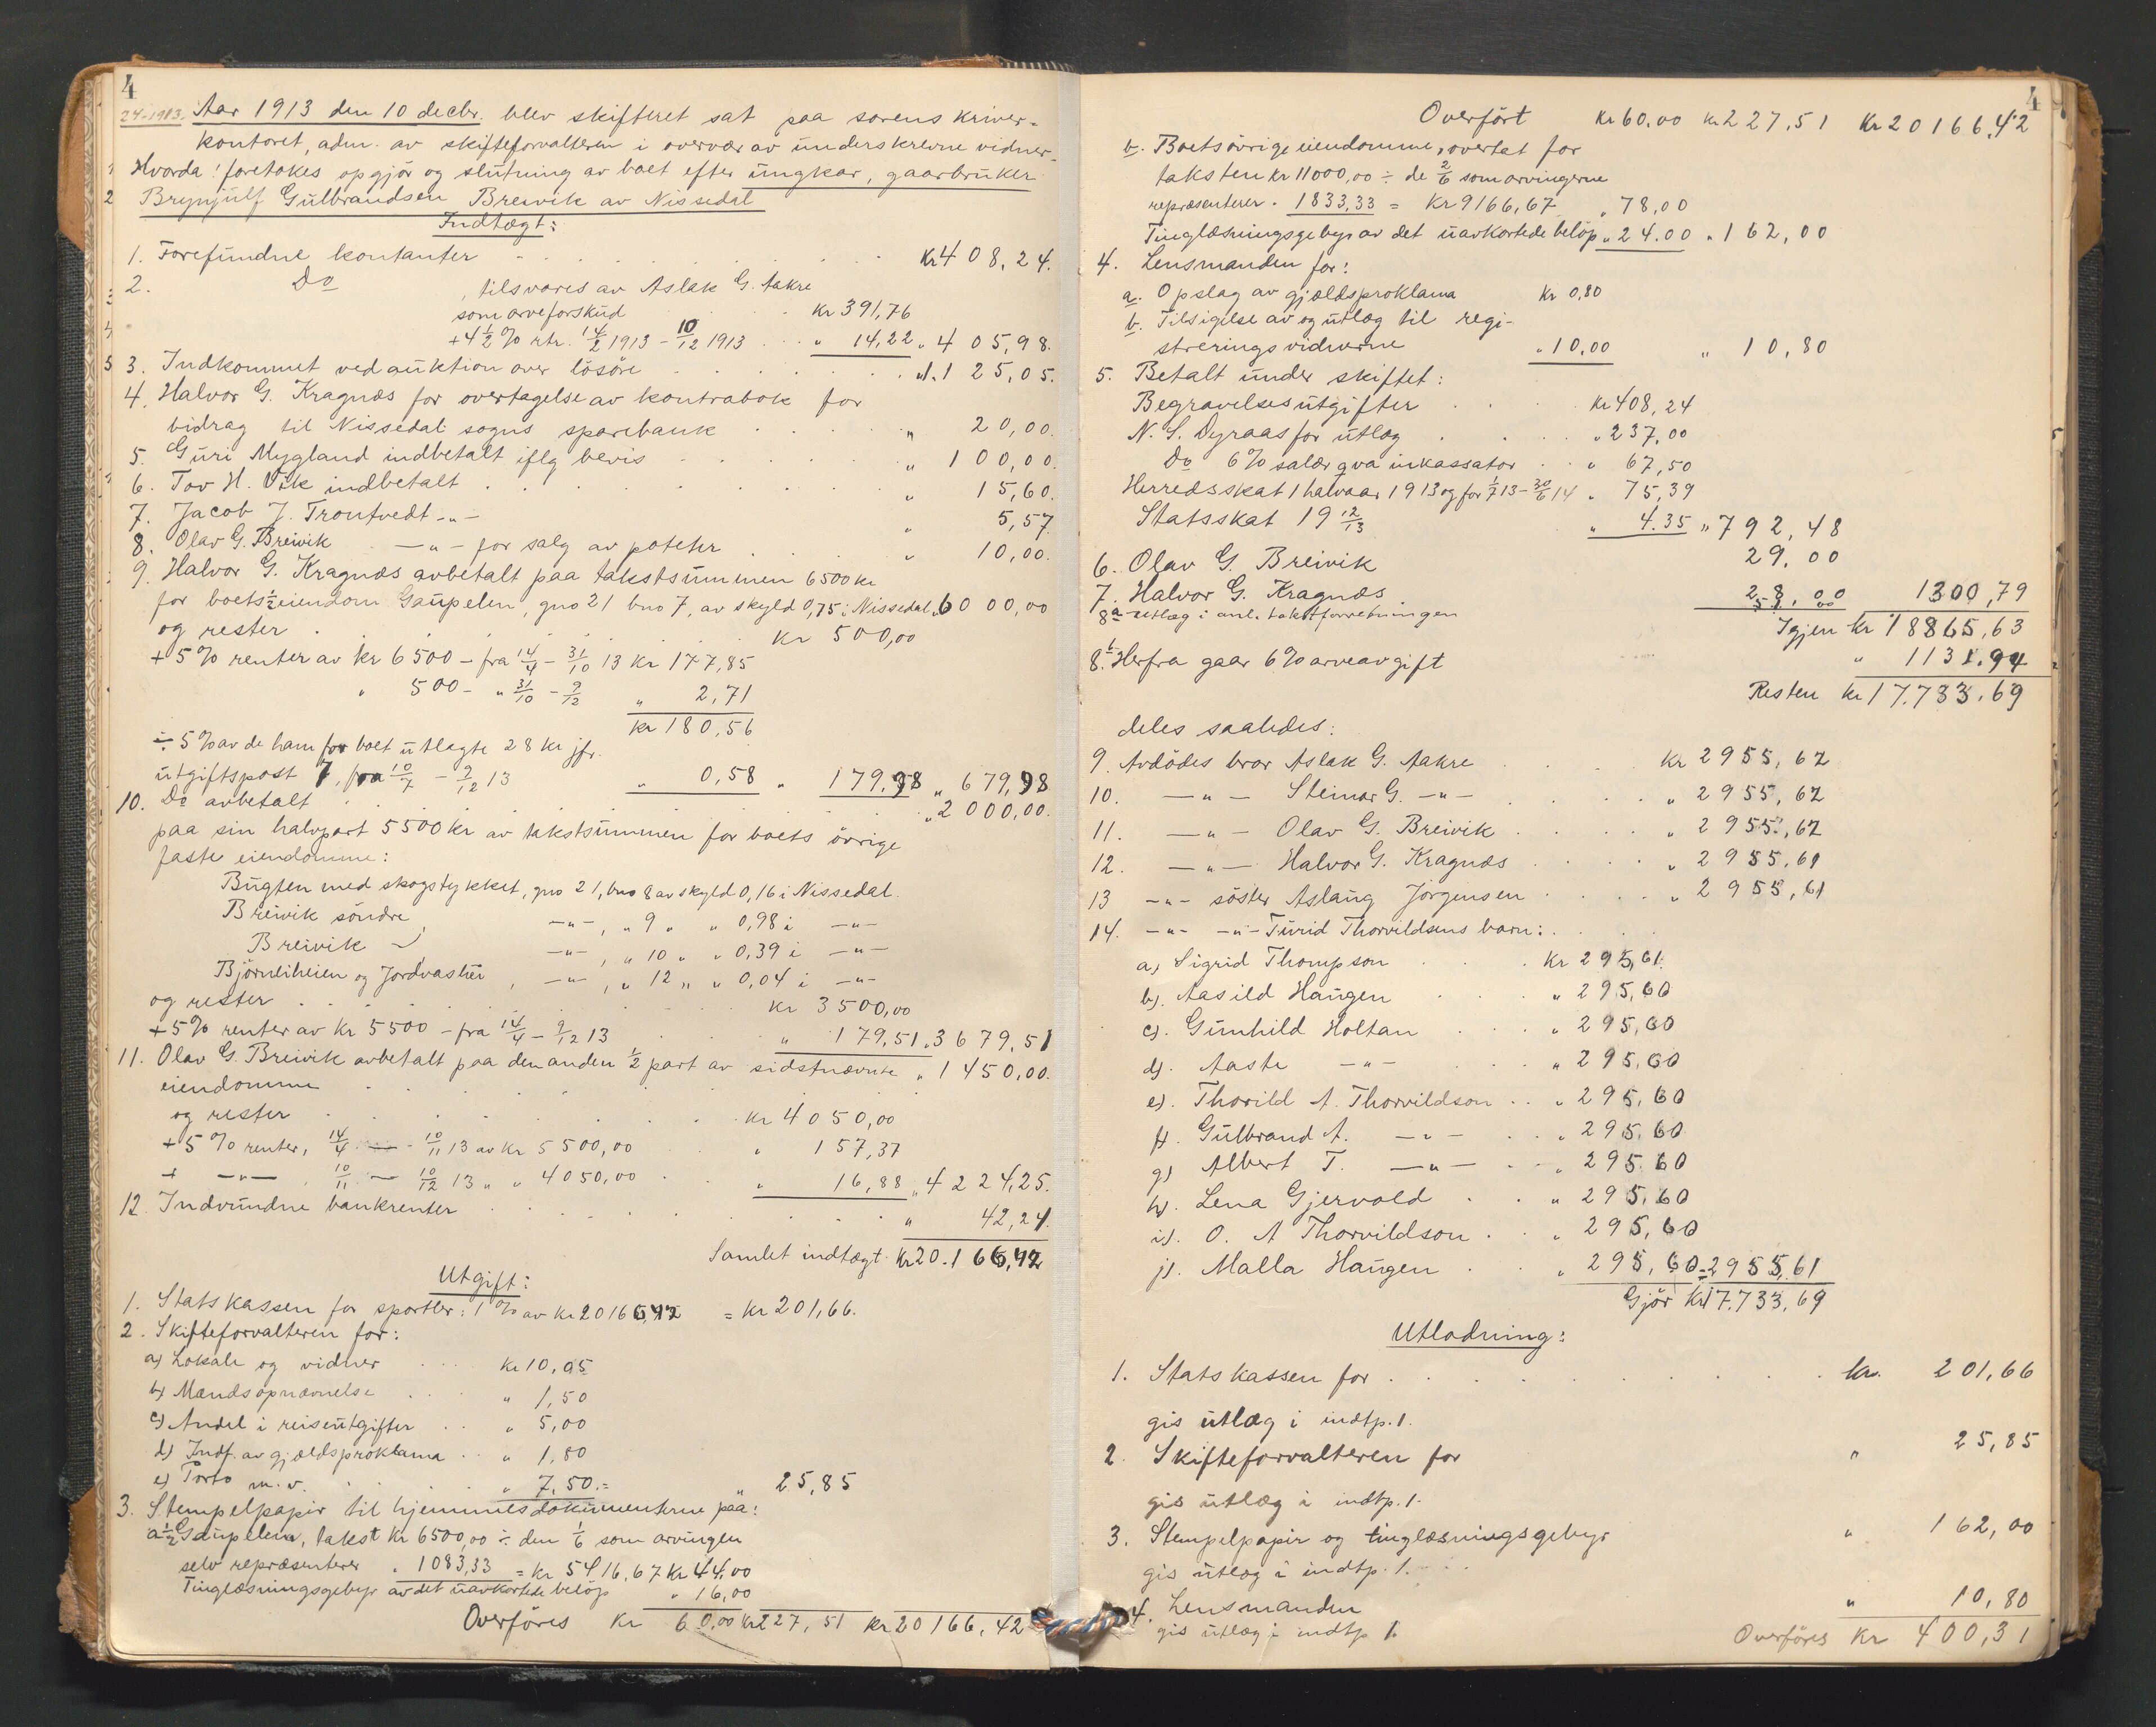 4
24-1913. Aar 1913 den 10 decbr. blev skifteret sat paa sorenskriver-
kontoret, adm. av skifteforvalteren i overvær av underskrevne vidner.
Hvorda: foretokes opgjör og slutning av boet efter ungkar, gaarbruker
Brynjulf Gulbrandsen Breivik av Nissedal
Indtægt:
1. Forefundne kontanter kr 408,24.
2. Do, tilsvares av Aslak G. Aakre
som arveforskud kr 391,76
+ 4½ % rtr. 14/2 1913 - 10/12 1913 " 14,22 " 405,98.
3. Indkommet ved auktion over lösöre " 1.125,05.
4. Halvor G. Kragnæs for overtagelse av kontrabok for
bidrag til Nissedal sogns sparebank " 20,00.
5. Guri Mygland indbetalt iflg bevis " 100,00.
6. Tov H. Vik indbetalt " 15,60.
7. Jacob J. Trontvedt -"- " 5,57
8. Olav G. Breivik -"- for salg av poteter " 10,00.
9. Halvor G. Kragnæs avbetalt paa takstsummen 6500 kr
for boets ½ eiendom Gaupelen, gno 21 bno 7, av skyld 0,75 i Nissedal " 6000,00
og rester kr 500,00
+ 5% renter av kr 6500 - fra 14/4 - 31/10 13 kr 177,85
" 500 - " 31/10 - 9/12 " 2,71
kr 180,56
÷ 5% av de ham for boet utlagte 28 kr jfr.
utgiftspost 7, fra 10/7 - 9/12 13 " 0,58 " 179,98 " 679,98
10. Do avbetalt " 2000,00.
paa sin halvpart 5500 kr av takstsummen for boets övrige
faste eiendomme:
Bugten med skogstykket, gno 21, bno 8 av skyld 0,16 i Nissedal.
Breivik söndre, -"-, " 9 " " 0,98 i -"-
Breivik -"-, -"-, " 10 " " 0,39 i -"-
Björneiheien og Jordvasheii, -"-, " 12 " " 0,04 i -"-
og rester kr 3500,00
+ 5% renter av kr 5500 - fra 14/4 - 9/12 13 " 179,51 " 3679,51
11. Olav G. Breivik avbetalt paa den anden ½ part av sidstnævnte " 1450,00.
eiendomme
og rester kr 4050,00
+ 5% renter, 14/4 - 10/11 13 av kr 5500,00 " 157,37
+ -"- 10/11 - 10/12 13 " " 4050,00 " 16,88 " 4224,25.
12. Indvundne bankrenter " 42,24.
Samlet indtægt kr 20.166,42
Utgift:
1. Statskassen for sportler: 1% av kr 20166,42 = kr 201,66.
2. Skifteforvalteren for:
a) Lokale og vidner kr 10,05
b) Mandsopnævnelse " 1,50
c) Andel i reiseutgifter " 5,00
d) Indf. av gjældsproklama " 1,80
e) Porto m.v. " 7,50 = " 25,85
3. Stempelpapir til hjemmelsdokumenterne paa:
a ½ Gaupelen, takst kr 6500,00 ÷ den 1/6 som arvingen
selv repræsenterer " 1083,33 = kr 5416,67 kr 44,00
Tinglæsningsgebyr av det uavkortede belöp " 16,00
Overföres kr 60,00 kr 227,51 kr 20166,42
4
Overfört kr 60,00 kr 227,51 kr 20166,42
b. Boets övrige eiendomme, overtat for
taksten kr 11000,00 ÷ de 2/6 som arvingerne
repræsenterer " 1833,33 = kr 9166,67 " 78,00
Tinglæsningsgebyr av det uavkortede belöp " 24.00 " 162,00
4. Lensmanden for:
a. Opslag av gjældsproklama kr 0,80
b. Tilsigelse av og utlæg til regi-
streringsvidnerne " 10,00 " 10,80
5. Betalt under skiftet:
Begravelsesutgifter kr 408,24
N. S. Dyraas for utlæg " 237,00
Do 6% salær qva inkassator " 67,50
Herredsskat 1 halvaar 1913 og for 1/7 13 - 30/6 14 " 75,39
Statsskat 19 12/13 " 4.35 " 792,48
6. Olav G. Breivik 29.00
7. Halvor G. Kragnæs 28,00 1300,79
8a utlæg i anl. takstforretningen
Igjen kr 18865,63
8b. Herfra gaar 6% arveavgift " 1131.94
Resten kr 17.733.69
deles saaledes:
9. Avdödes bror Aslak G. Aakre kr 2955,62
10. -"- Steinar G. -"- " 2955,62
11. -"- Olav G. Breivik " 2955,62
12. -"- Halvor G. Kragnæs " 2955,61
13 -"- söster Aslaug Jörgensen " 2955,61
14. -"- -"- Turid Thorvildsens barn:
a) Sigrid Thompson kr 295,61.
b). Aasild Haugen " 295,60
c). Gunhild Holtan " 295,60
d). Aaste -"- " 295,60
e). Thorild A. Thorvildson " 295,60
f). Gulbrand A. -"- " 295,60
g) Albert T. -"- " 295.60
h). Lena Gjervold " 295,60
i). O. A Thorvildson " 295,60
j). Malla Haugen " 295,60 = 2955,61
Gjör kr 17.733,69
Utlodning:
1. Statskassen for kr. 201,66
gis utlæg i indtp. 1.
2. Skifteforvalteren for " 25,85
gis utlæg i indtp. 1.
3. Stempelpapir og tinglæsningsgebyr " 162,00
gis utlæg i indtp. 1.
4. Lensmanden " 10,80
gis utlæg i indtp 1.
Overföres kr 400,31